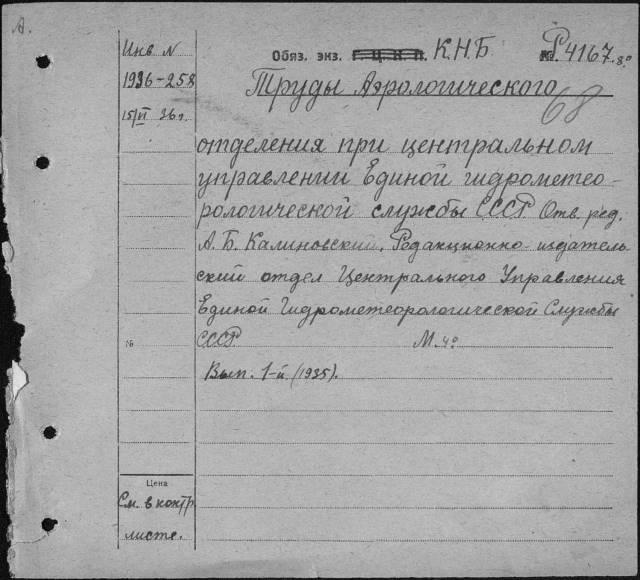 А.
Инв N
1936-258
15/VI 36 г.
Обяз. экз. Г. Ц. К. П. К.Н.Б
№ Р4167.8°
Труды Аэрологического
68
отделения при центральном
управлении Единой гидрометео-
рологической службы СССР. Отв. ред.
А. Б. Калиновский. Редакционно-издатель
ский отдел Центрального Управления
Единой Гидрометеорологической Службы
№ СССР М. 4°
Вып. 1-й (1935).
Цена
См. в контр.
листе.